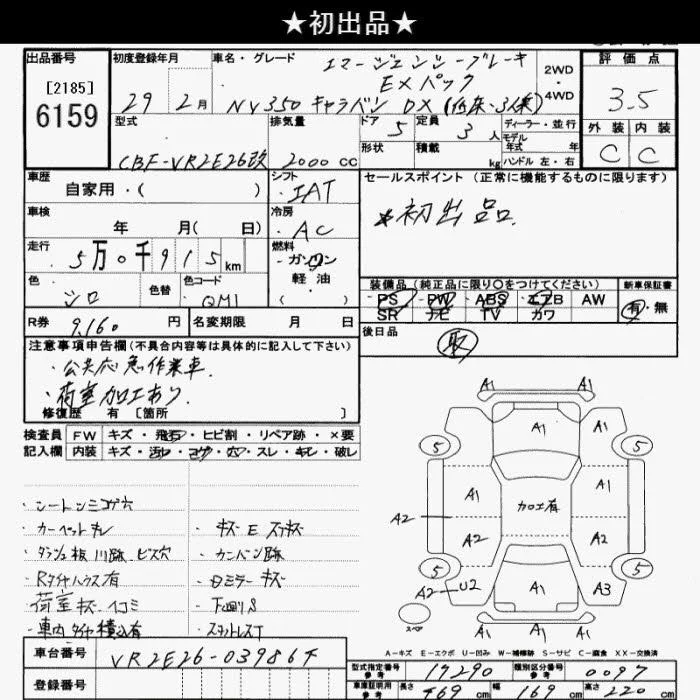 ★初出品★
出品番号
[2185]
6159
初度登録年月
29 2月
車名・グレード
エマージェンシーブレーキ
EXパック
NV350 キャラバン DX(低床・3人乗)
2WD
4WD
評価点
3.5
外装 内装
C C
型式
CBF-VR2E26改
排気量
2000cc
ドア 5
定員 3人
形状
積載 kg
ディーラー・並行
モデル年式 年
ハンドル 左・右
車歴
自家用・( )
シフト
IAT
車検
年 月( 日)
冷房
AC
走行
5万0千915km
燃料
ガソリン
軽油
( )
色
シロ
色替
色コード
QM1
R券 9,160円
名変期限 月 日
セールスポイント(正常に機能するものに限ります)
*初出品
装備品(純正品に限り〇をつけてください)
PS PW ABS エアB AW
SR ナビ TV カワ
新車保証書
有・無
後日品
取
注意事項申告欄(不具合内容等は具体的に記入して下さい)
・公共応急作業車.
・荷室加工あり
修復歴 有 [箇所 ]
検査員 FW キズ・飛石・ヒビ割・リペア跡・×要
記入欄 内装 キズ・汚レ・コゲ・穴・スレ・キレ・破レ
・シートシミコゲ穴
・カーペットキレ
・ダッシュ板 ビス穴
・Rタイヤハウス有
・荷室キズ・ヘコミ
・車内タイヤ積込有
・カンバン跡
・ミラーキズ
・下廻りS
・スタットレスT
A1 A1
A1
5 5
A1 加工有 A1
A2
A2 A2
5 5
A2 U2 A1 A3
スペア
A1 A1 A1
A-キズ E-エクボ U-凹み W-補修跡 S-サビ C-腐食 XX-交換済
車台番号 VR2E26-039864
登録番号
型式指定番号 参考 17290
類別区分番号 参考 0097
車庫証明用 参考 長さ 469cm 幅 169cm 高さ 220cm